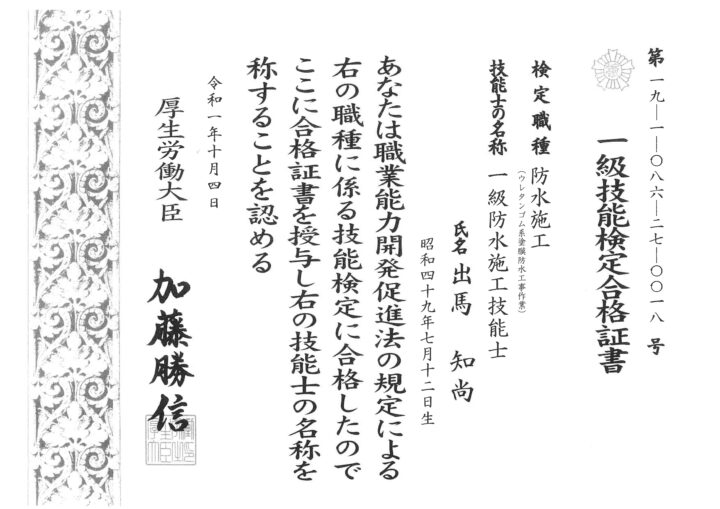 第一九―一―〇八六―二七―〇〇一八号
一級技能検定合格証書
検定職種 防水施工
(ウレタンゴム系塗膜防水工事作業)
技能士の名称 一級防水施工技能士
氏名 出馬 知尚
昭和四十九年七月十二日生
あなたは職業能力開発促進法の規定による
右の職種に係る技能検定に合格したので
ここに合格証書を授与し右の技能士の名称を
称することを認める
令和一年十月四日
厚生労働大臣 加藤勝信